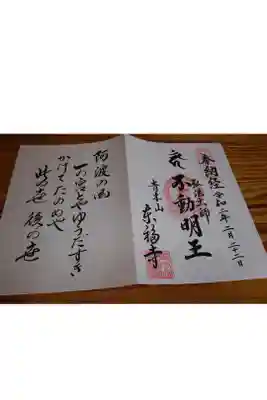 奉納経 令和二年二月二十二日
弘法大師
不動明王
青木山
東福寺
阿波の國
一の宮とやゆうだすき
かけてたのめや
此の世 後の世